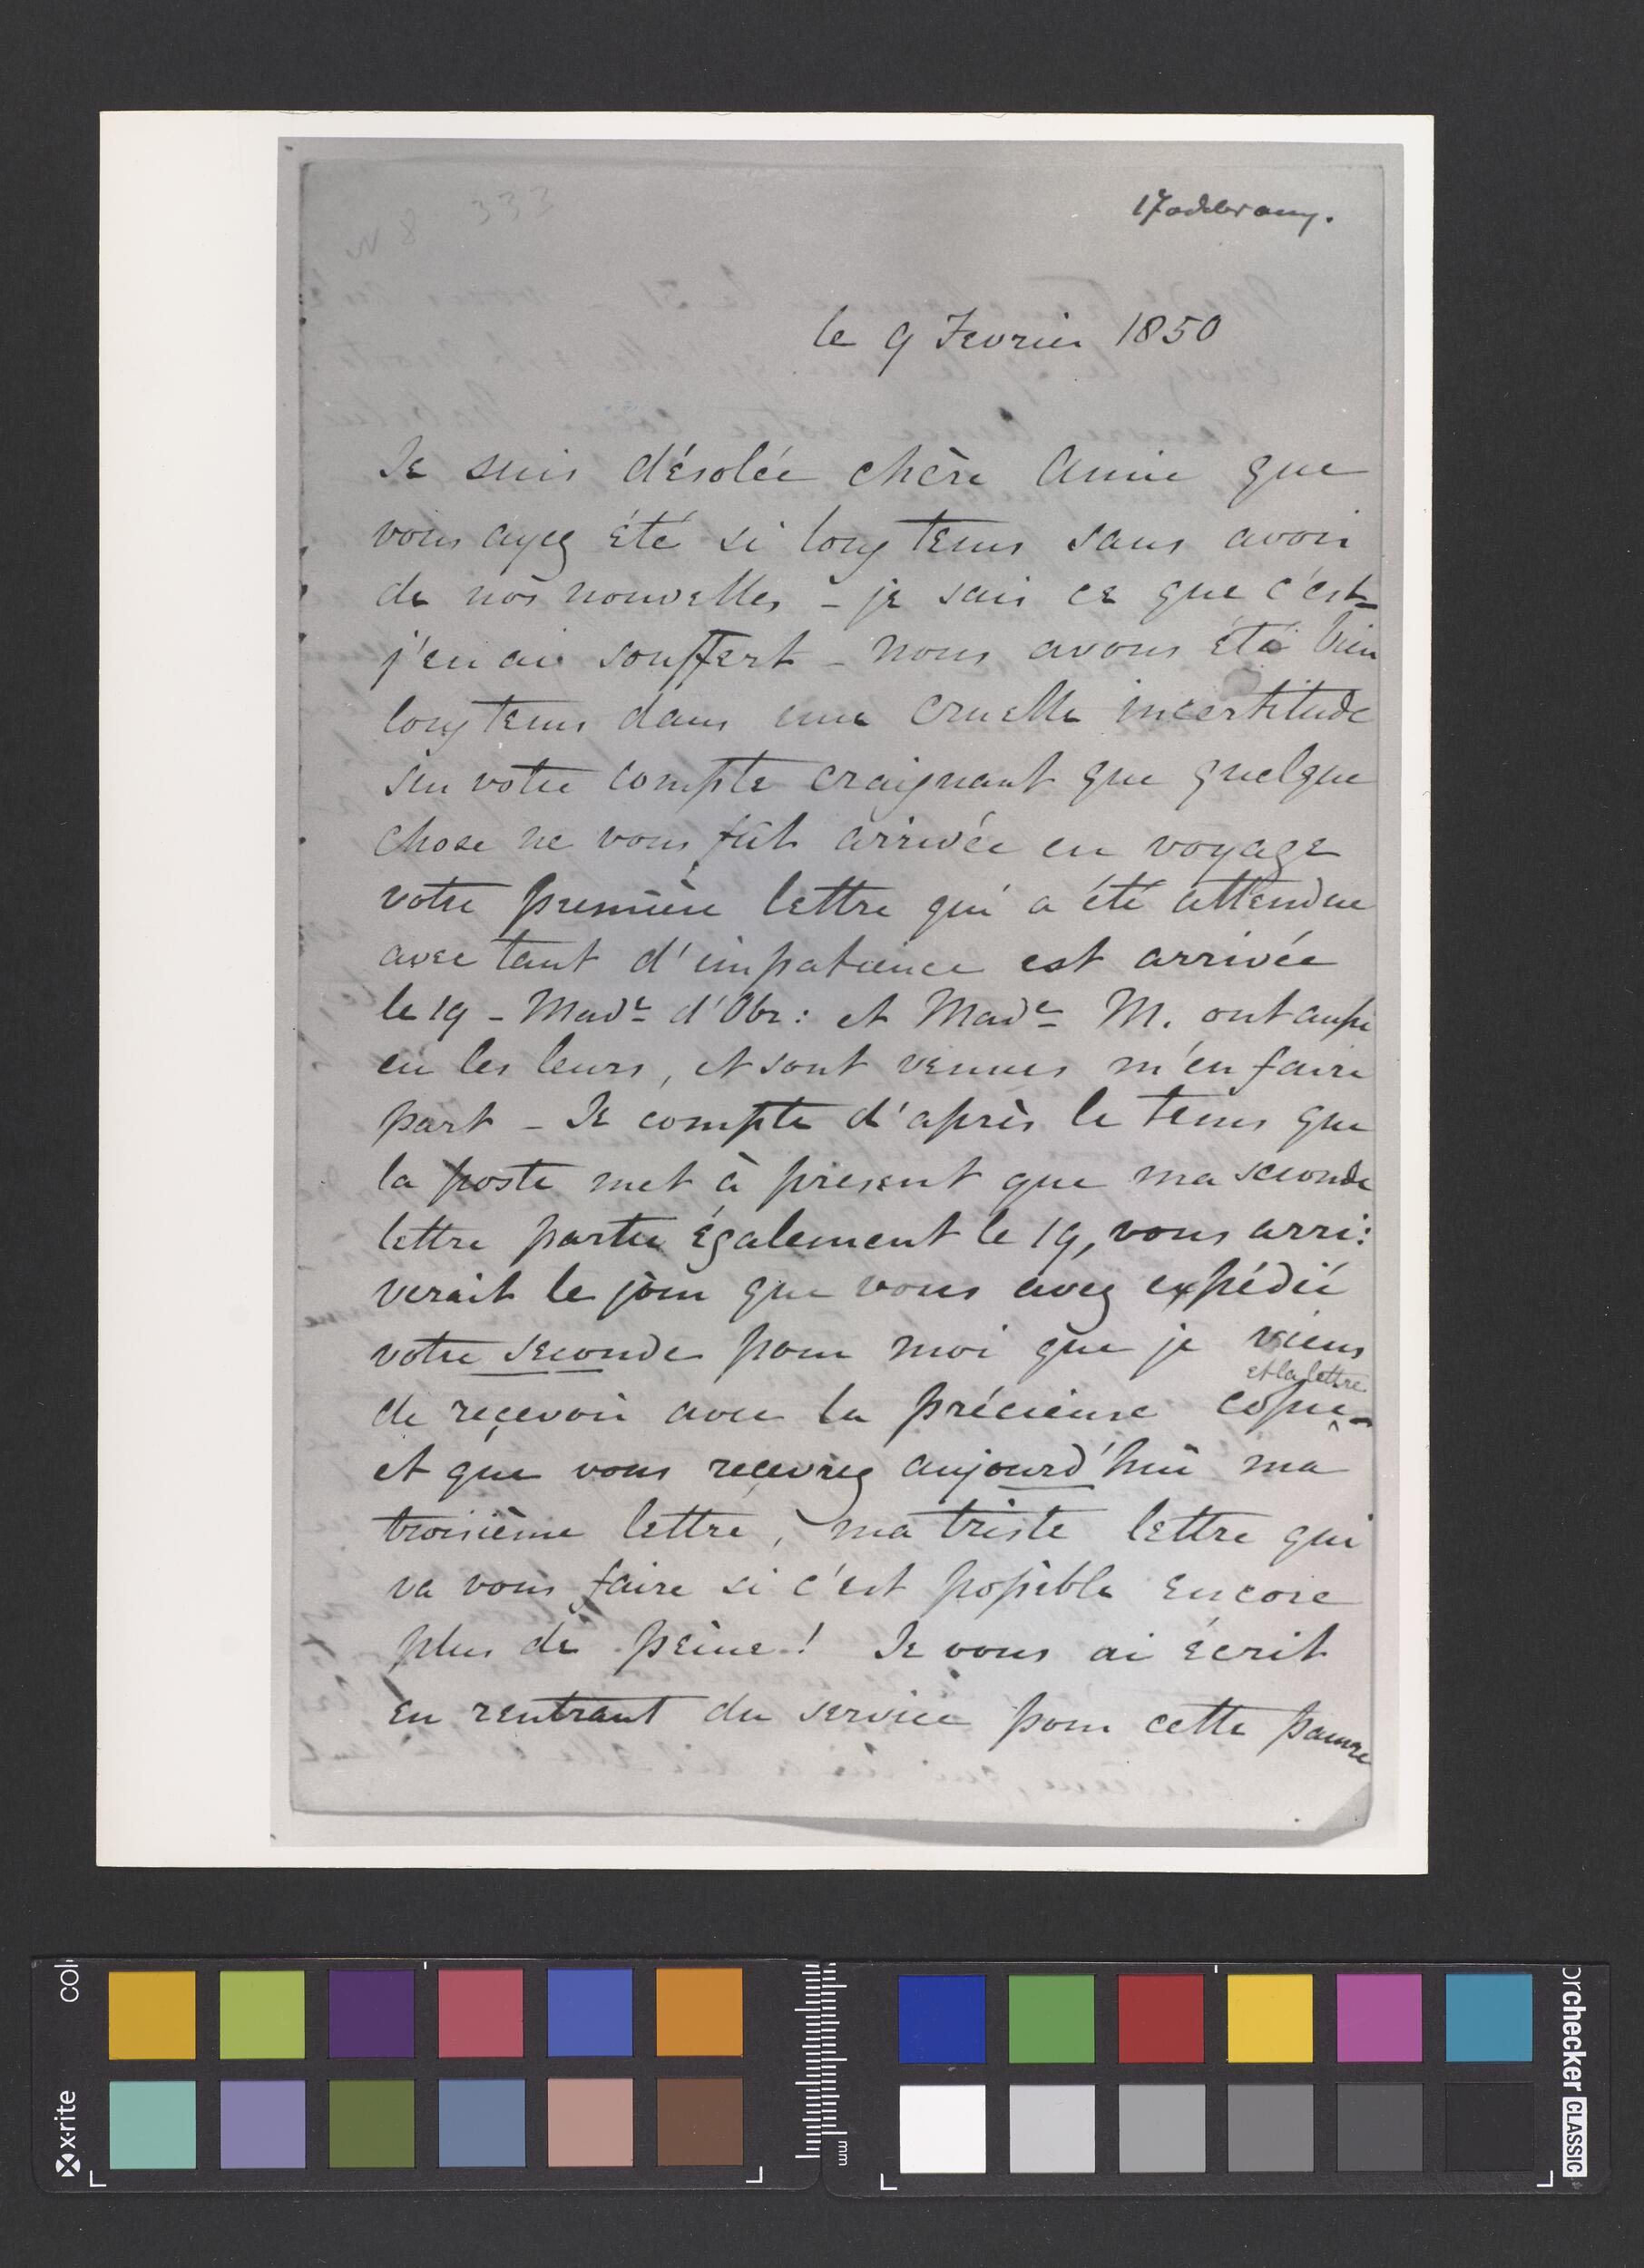 333
N 8
le 9 Fevrier 1850
Je suis désolée chère Amie que
vous ayez été si long tems sans avoir
de nos nouvelles - je sais ce que c'est -
j'en ai souffert - nous avons été bien
long tems dans une cruelle incertitude
sur votre compte craignant que quelque
chose ne vous fût arrivée en voyage
votre première lettre qui a été attendue
avec tant d'impatience est arrivée
le 19 - Made d'Obr: et Made M. ont aussi
eu les leurs, et sont venues m'en faire
part - Je compte d'après le tems que
la poste met à présent que ma seconde
lettre partie également le 19, vous arri:
verait le jour que vous avez expédié
votre seconde pour moi que je viens
et la lettre
de reçevoir avec la précieuse copie -
et que vous reçevrez aujourd'hui ma
troisième lettre, ma triste lettre qui
va vous faire si c'est possible encore
plus de peine! Je vous ai écrit
en rentrant du service pour cette pauvre
x-rite
col
mm
orchecker CLASSIC